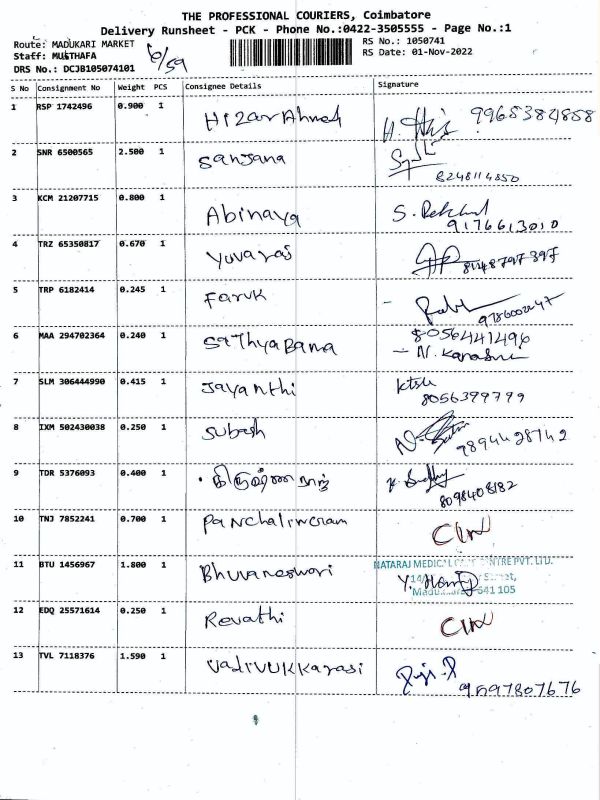 THE PROFESSIONAL COURIERS, Coimbatore
Delivery Runsheet - PCK - Phone No.:0422-3505555 - Page No.:1
Route: MADUKARI MARKET
RS No.: 1050741
Staff: MUSTHAFA
RS Date: 01-Nov-2022
DRS No.: DCJB105074101
S No Consignment No Weight PCS Consignee Details Signature
1 RSP 1742496 0.900 1 HizarAhmed 9965382858
2 SNR 6500565 2.500 1 Sanjana
8248114850
3 KCM 21207715 0.800 1 Abinaya S.
9176613010
4 TRZ 65350817 0.670 1 Yuvaraj
8148797397
5 TRP 6182414 0.245 1 Faruk
6 MAA 294702364 0.240 1 Sathyabama 8056441496
7 SLM 306444990 0.415 1 Jayanthi
8056399799
8 IXM 502430038 0.250 1 Subash
9894428742
9 TDR 5376093 0.400 1 கிருஷ்ணராஜ்
8098408182
10 TNJ 7852241 0.700 1
11 BTU 1456967 1.800 1 Bhuvaneswari
NATARAJ MEDICAL CENTRE PVT. LTD.
Street,
641 105
12 EDQ 25571614 0.250 1 Revathi
13 TVL 7118376 1.590 1 Vadivukkarasi
9597807676